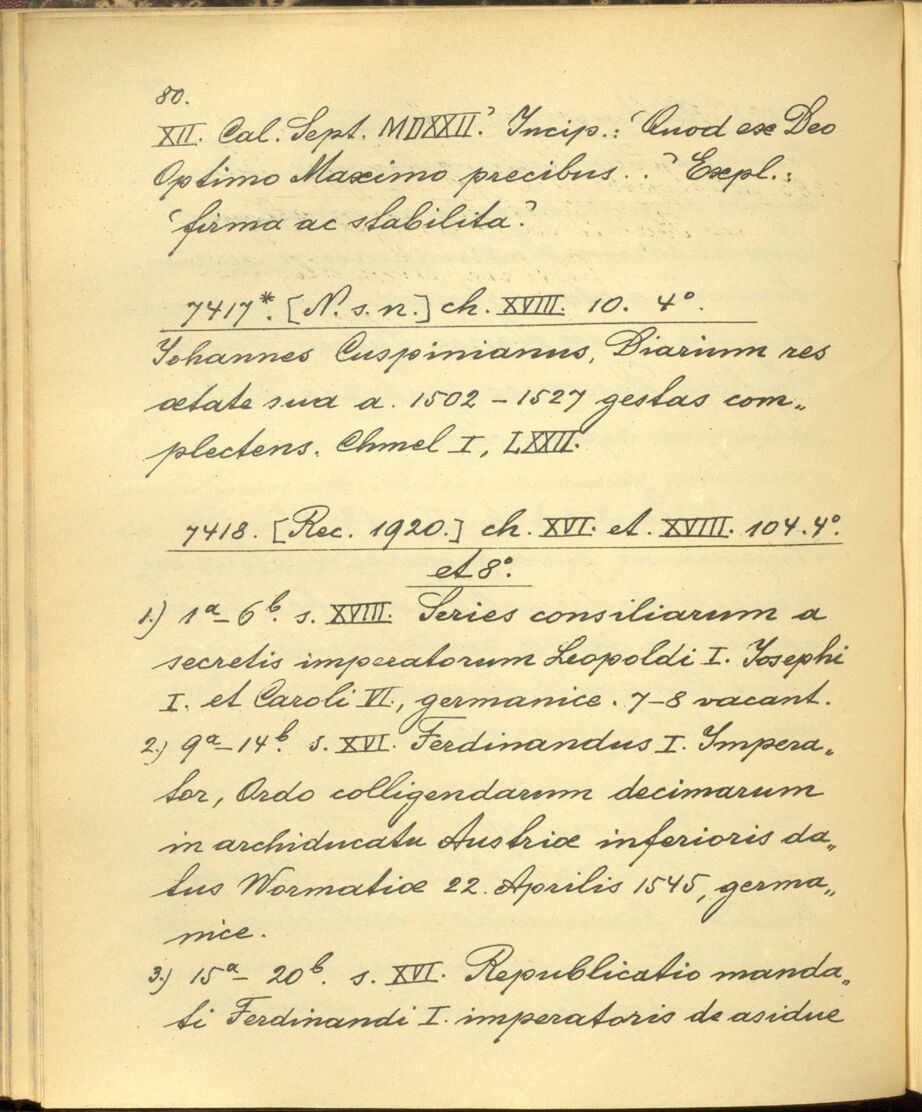 80.
XII. Cal. Sept. MDXXII.' Incip.: 'Quod ex Deo
Optimo Maximo precibus . .' Expl.:
'firma ac stabilita.'
7417*. [N. s. n.] ch. XVIII. 10. 4°.
Johannes Cuspinianus, Diarium res
ætate sua a. 1502 – 1527 gestas com„
plectens. Chmel I, LXXII.
7418. [Rec. 1920.] ch. XVI. et. XVIII. 104. 4°.
et 8°.
1.) 1a– 6b. s. XVIII. Series consiliarum a
secretis imperatorum Leopoldi I. Josephi
I. et Caroli VI., germanice. 7–8 vacant.
2.) 9a–14b. s. XVI. Ferdinandus I. Impera„
tor, Ordo colligendarum decimarum
in archiducatu Austriæ inferioris da„
tus Wormatiæ 22. Aprilis 1545, germa„
nice.
3.) 15a– 20b. s. XVI. Republicatio manda„
ti Ferdinandi I. imperatoris de asidue